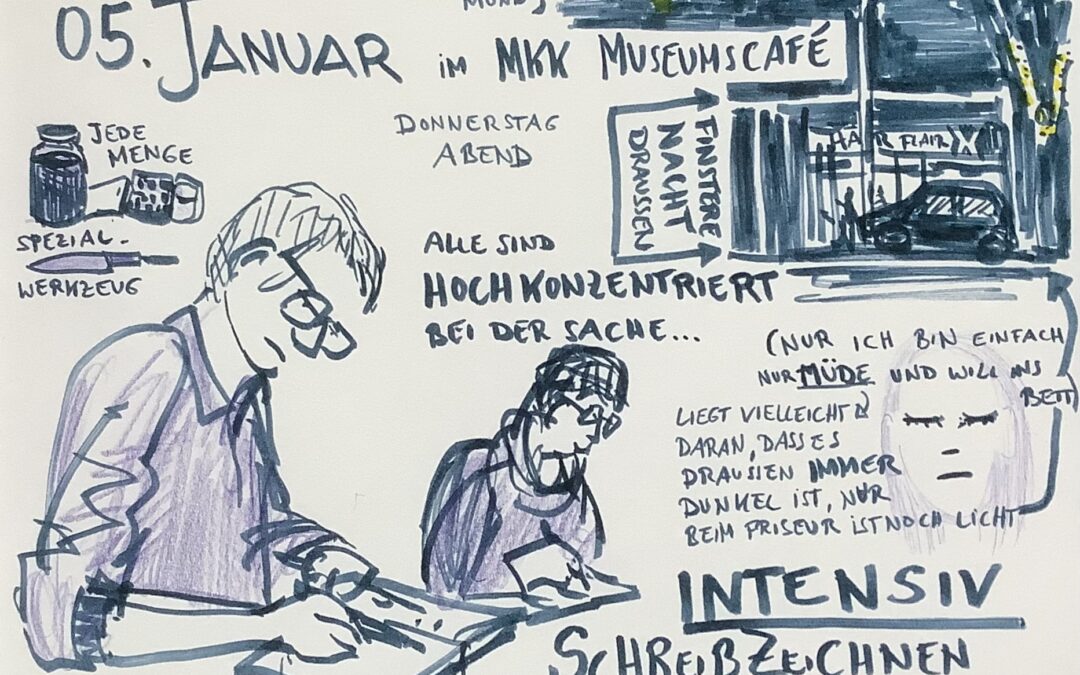 MOND,
05. JANUAR IM MKK MUSEUMSCAFÉ
DONNERSTAG
ABEND
JEDE
MENGE
SPEZIAL-
WERKZEUG
FINSTERE
NACHT
DRAUSSEN
HAIR FLAIR
ALLE SIND
HOCHKONZENTRIERT
BEI DER SACHE...
(NUR ICH BIN EINFACH
NUR MÜDE UND WILL INS
BETT)
LIEGT VIELLEICHT
DARAN, DASS ES
DRAUSSEN IMMER
DUNKEL IST, NUR
BEIM FRISEUR IST NOCH LICHT
INTENSIV
SCHREIBZEICHNEN